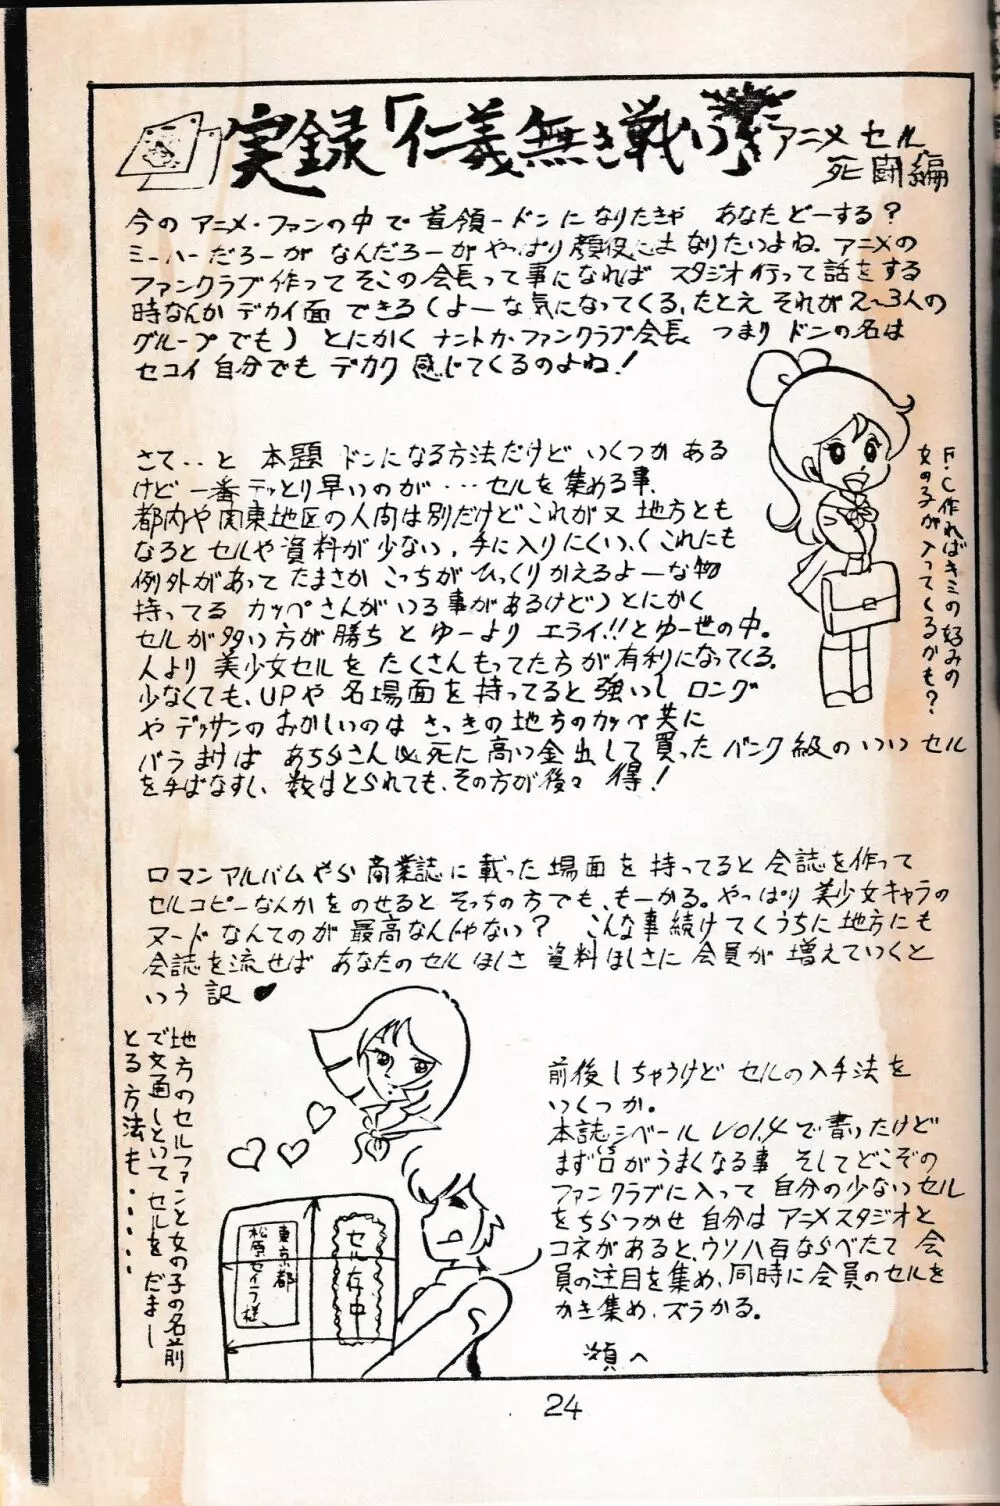 実録「仁義無き戦い」アニメセル
死闘編
今のアニメ・ファンの中で首領ードンになりたきゃ あなたどーする?
ミーハーだろーがなんだろーがやっぱり顔役にはなりたいよね。アニメの
ファンクラブ作ってそこの会長って事になれば スタジオ行って話をする
時なんかデカイ面できる(よーな気になってくる、たとえそれが2〜3人の
グループでも)とにかくナントカ・ファンクラブ会長 つまりドンの名は
セコイ自分でもデカク感じてくるのよね!
F・C作ればキミの好みの
女の子が入ってくるかも?
さて‥と 本題 ドンになる方法だけど いくつかある
けど一番テッとり早いのが…セルを集める事。
都内や関東地区の人間は別だけどこれが又地方とも
なるとセルや資料が少ない、手に入りにくい、(これにも
例外があってたまさかこっちがひっくりかえるよーな物
持ってるカッペさんがいる事があるけど)とにかく
セルが多い方が勝ちとゆーよりエライ!!とゆー世の中。
人より美少女セルをたくさんもってた方が有利になってくる。
少なくても、UPや名場面を持ってると強いし ロング
やデッサンのおかしいのはさっきの地方のカッペ共に
バラまけば あちらさん必死に高い金出して買ったバンク級のいいセル
を手ばなすし、数はとられても、その方が後々得!
ロマンアルバムやら商業誌に載った場面を持ってると会誌を作って
セルコピーなんかをのせるとそっちの方でも、もーかる。やっぱり美少女キャラの
ヌードなんてのが最高なんじゃない? こんな事続けてくうちに地方にも
会誌を流せば あなたのセルほしさ 資料ほしさに会員が増えていくと
いう訳♥
地方のセルファンと女の子の名前
で文通しといてセルをだまし
とる方法も・・・・・
東京都
松原セイラ様
セル在中
前後しちゃうけど セルの入手法を
いくつか。
本誌シベールVol.4で書ったけど
まず口がうまくなる事 そしてどこぞの
ファンクラブに入って自分の少ないセル
をちらつかせ自分はアニメスタジオと
コネがあると、ウソ八百ならべたて 会
員の注目を集め、同時に会員のセルを
かき集め、ズラかる。
次頁へ
24